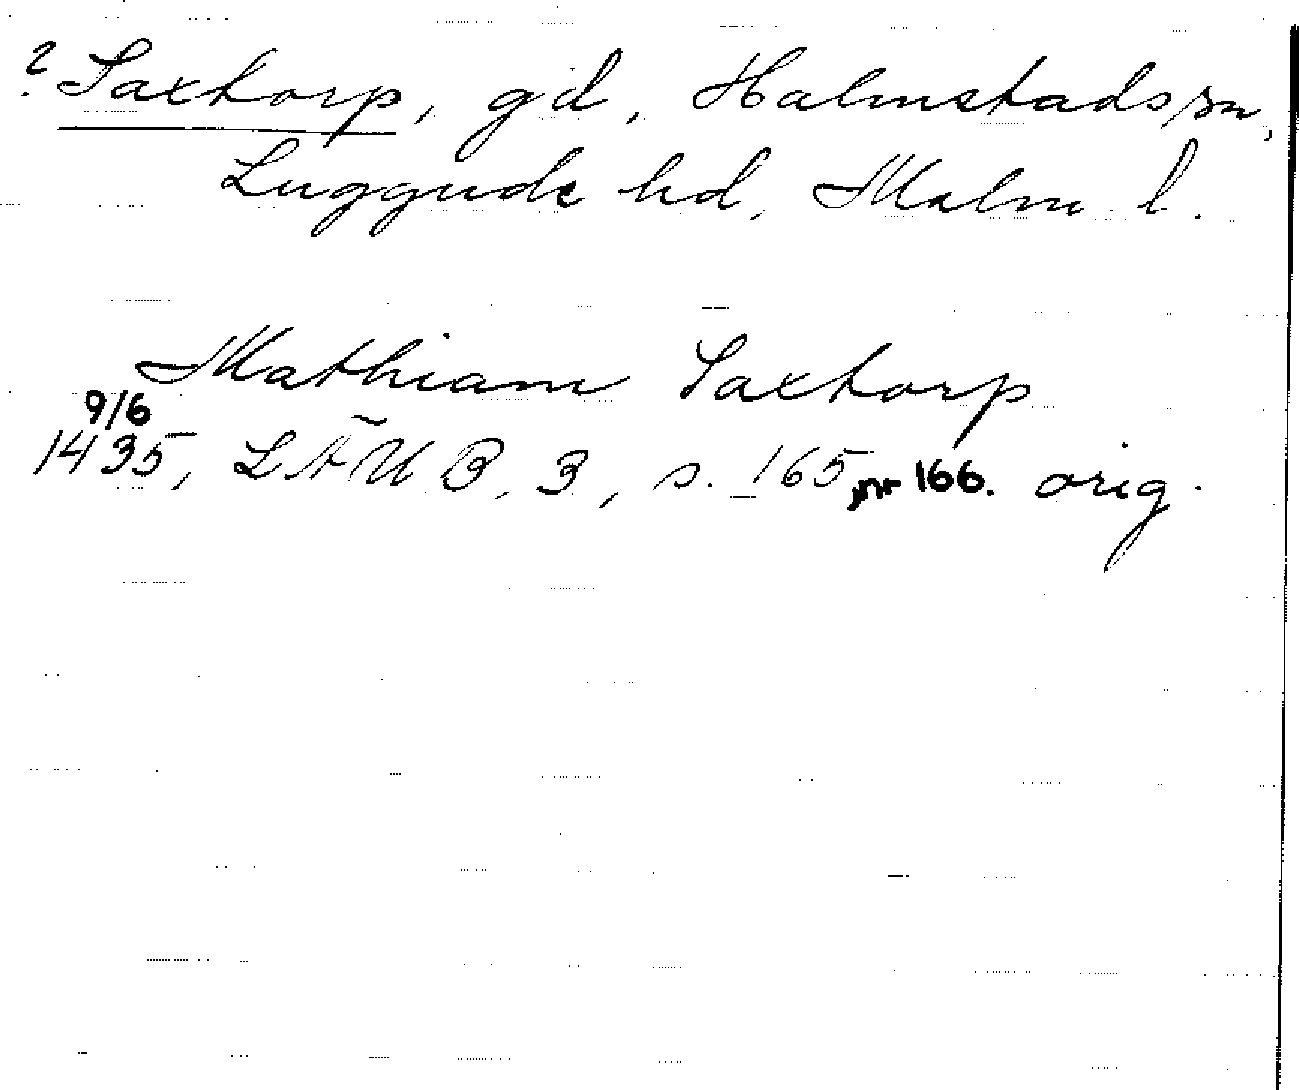 ? Saxtorp, gd, Halmstads sn,
Luggude hd, Malm. l.
Mathiam Saxtorp
9/6
1435, LÄUB. 3, s. 165, nr 166. orig.